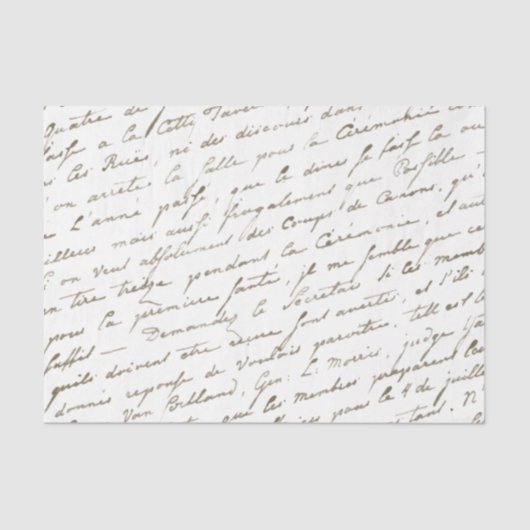 Quatre de
fasse a la Citty Tavern
les Rues, ni des discours dans
on arrete la Salle pour la Cérémonie
L'anné passé, que le diner se fasse la ou
ailleurs mais aussi frugalement que Possible
on veut absolument des Coups de Canons, qu'
en tire treize pendant la Cérémonie, et aut
pour la premiere santé, il me semble que ce
suffit — Demandez le Secretair si les memb
quils doivent etre recue sont averti, et s'ils
donnés reponse de Vouloir paroitre, tell est le
Van Cortland, Gen: L: Morris, judge
que les membres preparent
pour le 4 de juille
tant. N